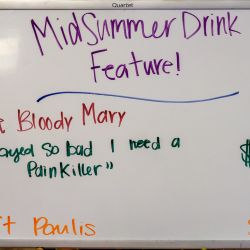 Quartet
MidSummer Drink
Feature!
Bloody Mary
so bad I need a
Painkiller"
$
Paulis